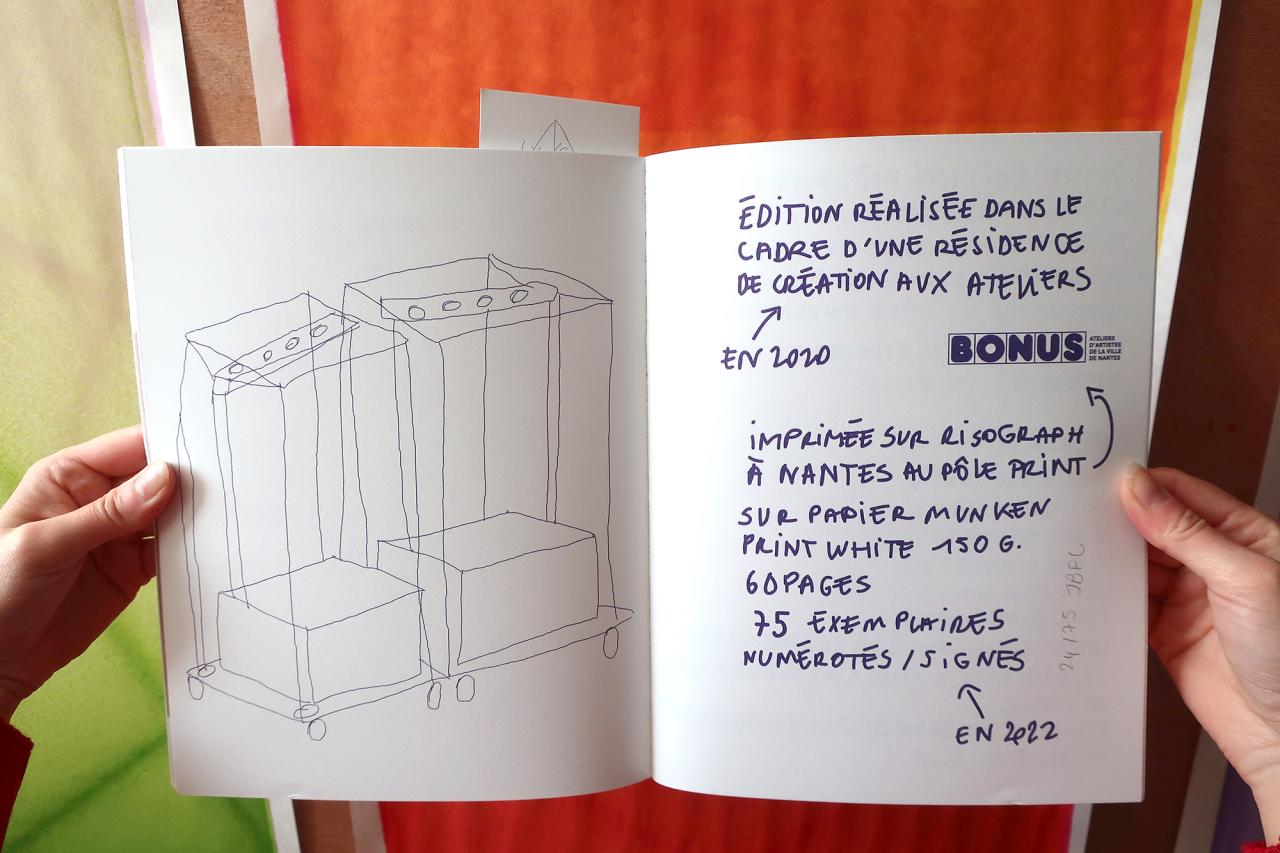 ÉDITION RÉALISÉE DANS LE
CADRE D'UNE RÉSIDENCE
DE CRÉATION AUX ATELIERS
EN 2020
BONUS
ATELIERS
D'ARTISTES
DE LA VILLE
DE NANTES
IMPRIMÉE SUR RISOGRAPH
À NANTES AU PÔLE PRINT
SUR PAPIER MUNKEN
PRINT WHITE 150 G.
60 PAGES
75 EXEMPLAIRES
NUMÉROTÉS / SIGNÉS
EN 2022
24/75 JBPL